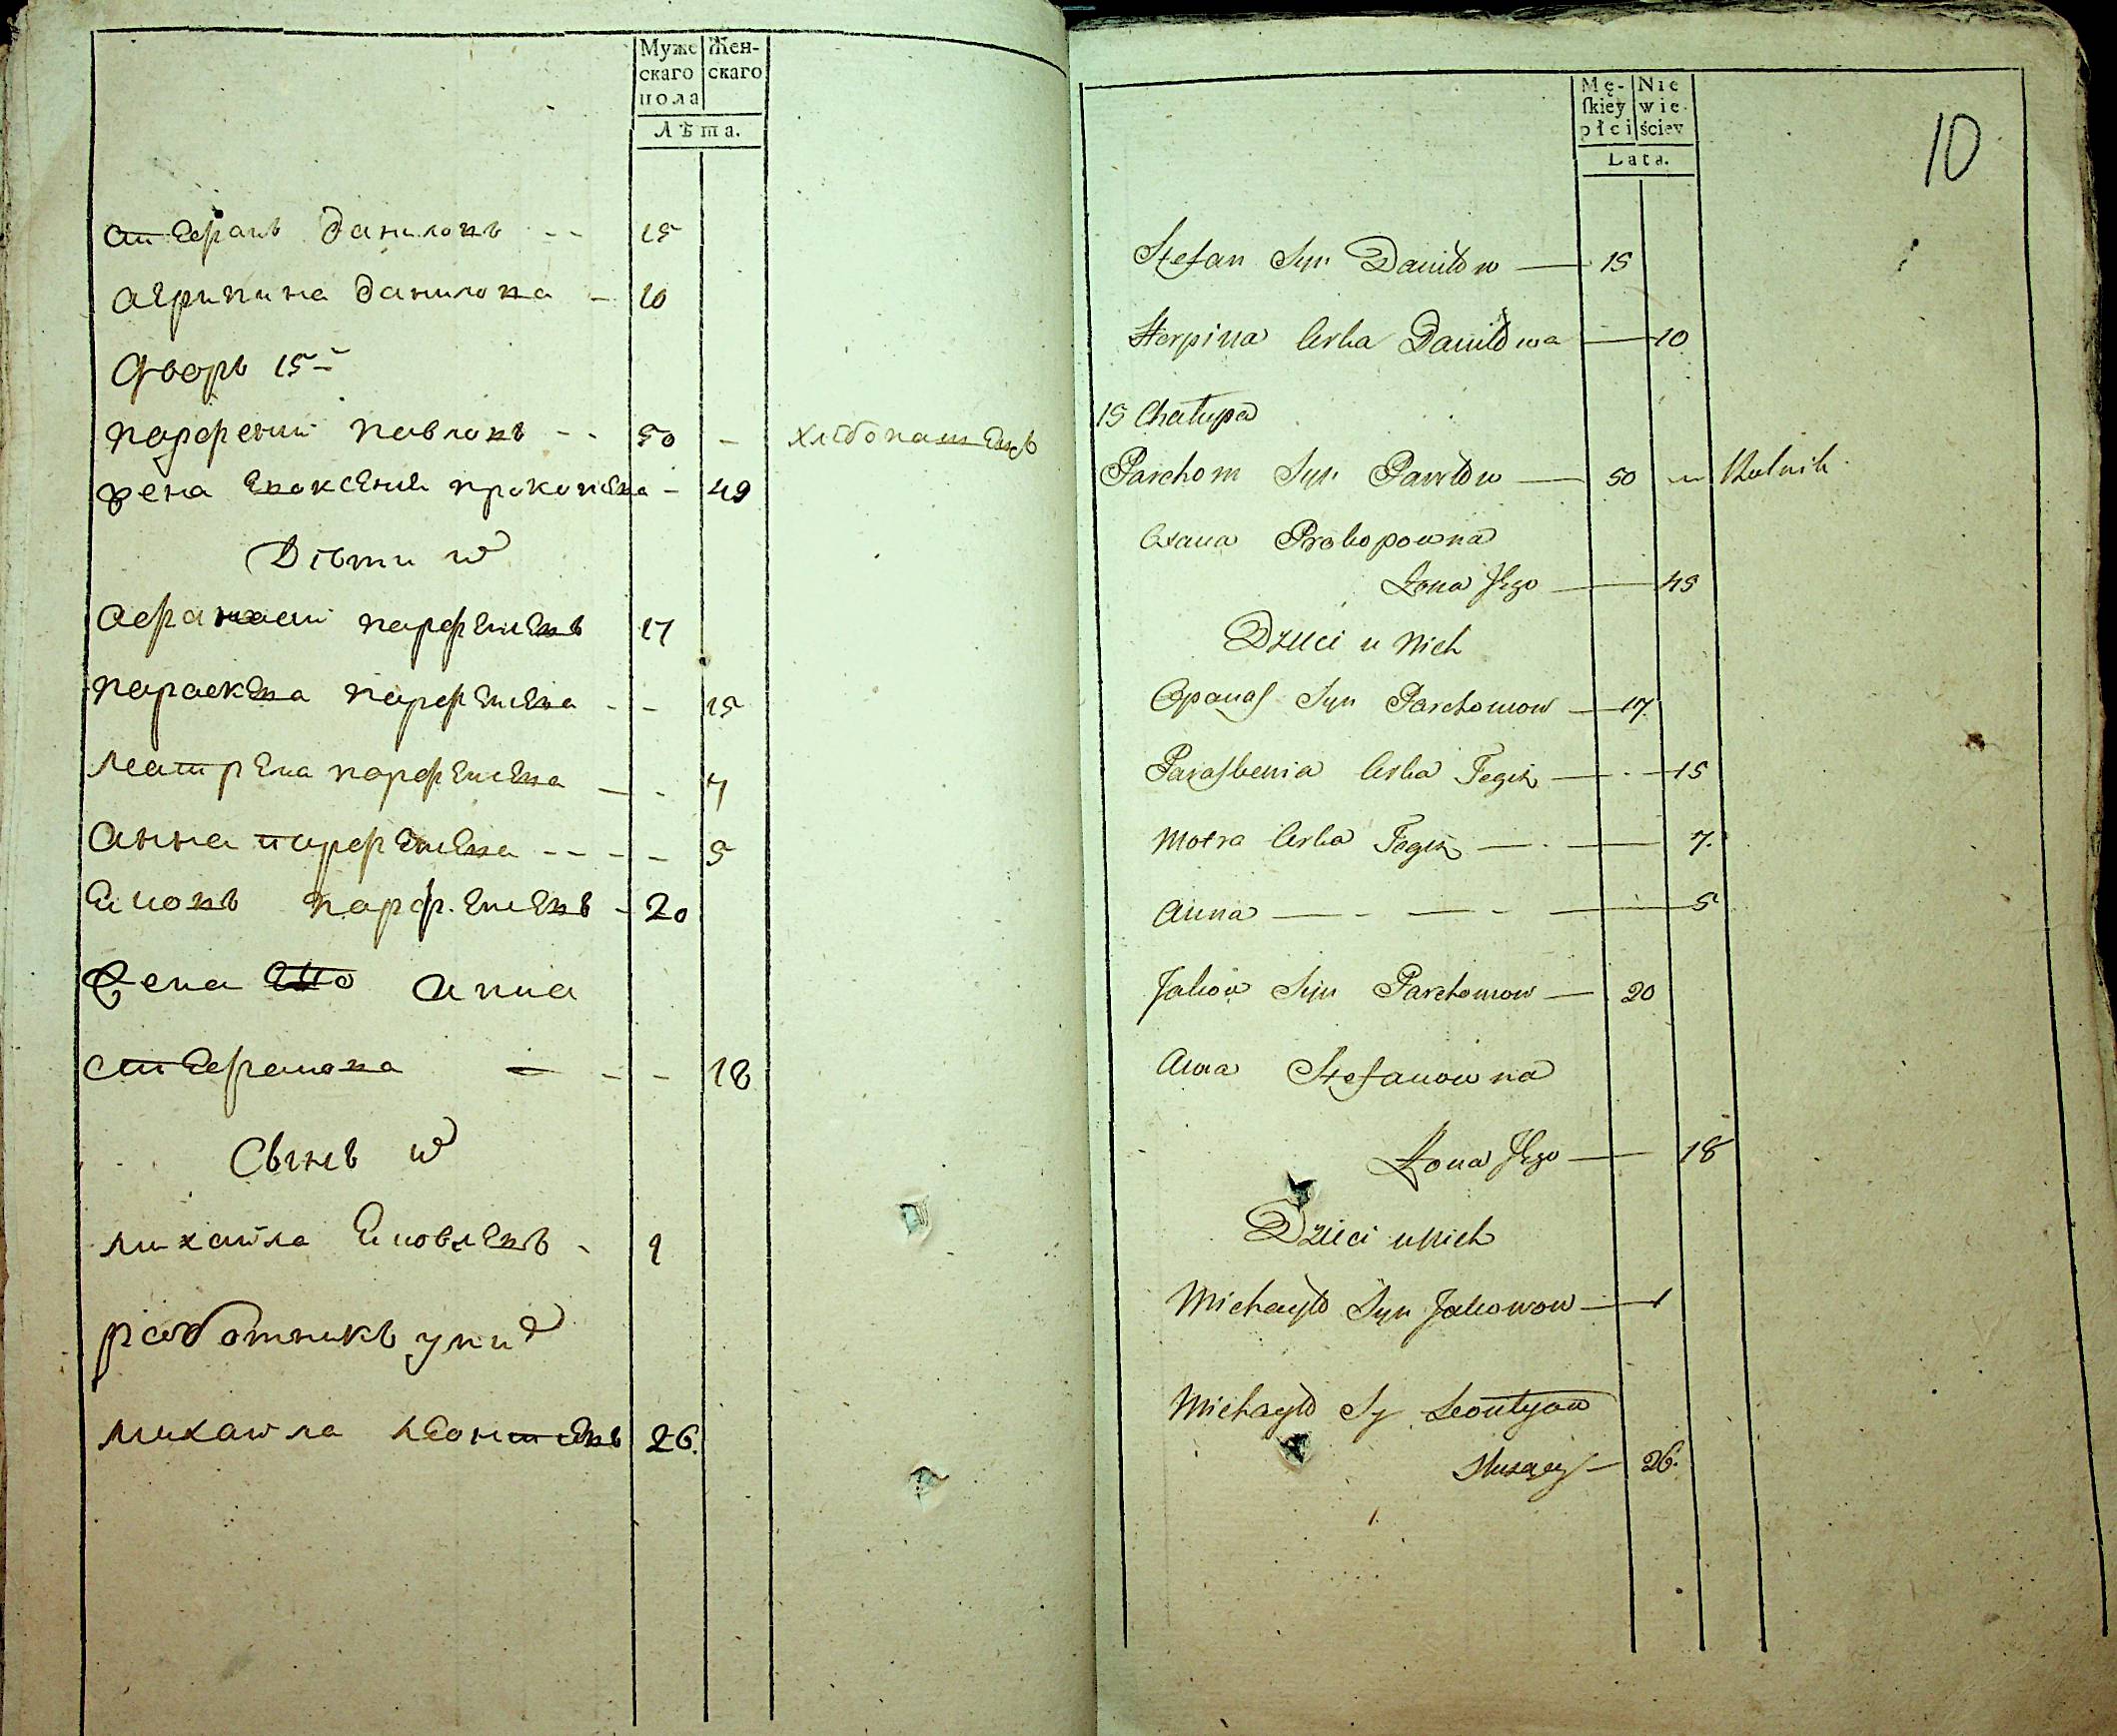 Муже
скаго
пола
Жен-
скаго
Лѣта.
Стефанъ Даниловъ -- 15
Агрипина Данилова - 10
Дворъ 15й
Парфений Павловъ -- 50 - хлебопашецъ
Жена Евксения Прокопева - 49
Дѣти ихъ
Афанасий Парфениевъ 17
Параскева Парфениева - - 15
Матрена Парфениева - - 7
Анна Парфениева - - - - 5
Парфениевъ - 20
Жена его Анна
Стефанова - - - 18
Сынъ ихъ
Михайла Яковлевъ - 1
Работникъ у них
Михайла Леонтиевъ 26.
Mę-
skiey
płci
Nie
wie-
ściey
Lata.
10
Stefan Syn Daniłow — 15
Horpina Corka Daniłowa — 10
15 Chałupa
Parchom Syn Pawłow — 50 Rolnik.
Oxana Prokopowna
Żona Jego — 49
Dzieci u Nich
Opanas Syn Parchomow — 17.
Paraskewia Corka Tegoż — - — 15
Motra Corka Tegoż — - — 7.
Anna — - — - — 5
Jakow Syn Parchomow — 20
Anna Stefanowna
Żona Jego — 18
Dzieci u Nich
Michayło Syn Jakowow — 1
Michayło Sy Leontyow
Służący — 26.